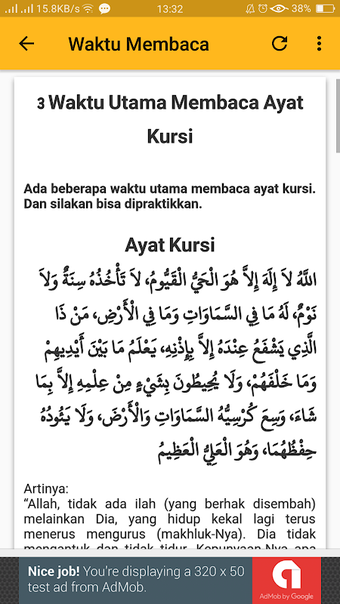 15.8KB/s 13:32 38%
Waktu Membaca
3 Waktu Utama Membaca Ayat
Kursi
Ada beberapa waktu utama membaca ayat kursi.
Dan silakan bisa dipraktikkan.
Ayat Kursi
اللَّهُ لاَ إِلَهَ إِلاَّ هُوَ الْحَيُّ الْقَيُّومُ، لاَ تَأْخُذُهُ سِنَةٌ وَلاَ
نَوْمٌ، لَهُ مَا فِي السَّمَاوَاتِ وَمَا فِي الْأَرْضِ، مَنْ ذَا
الَّذِي يَشْفَعُ عِنْدَهُ إِلاَّ بِإِذْنِهِ، يَعْلَمُ مَا بَيْنَ أَيْدِيهِمْ
وَمَا خَلْفَهُمْ، وَلَا يُحِيطُونَ بِشَيْءٍ مِنْ عِلْمِهِ إِلاَّ بِمَا
شَاءَ، وَسِعَ كُرْسِيُّهُ السَّمَاوَاتِ وَالْأَرْضَ، وَلَا يَئُودُهُ
حِفْظُهُمَا، وَهُوَ الْعَلِيُّ الْعَظِيمُ
Artinya:
“Allah, tidak ada ilah (yang berhak disembah)
melainkan Dia, yang hidup kekal lagi terus
menerus mengurus (makhluk-Nya). Dia tidak
mengantuk dan tidak tidur. Kepunyaan-Nya apa
Nice job! You're displaying a 320 x 50
test ad from AdMob.
AdMob by Google